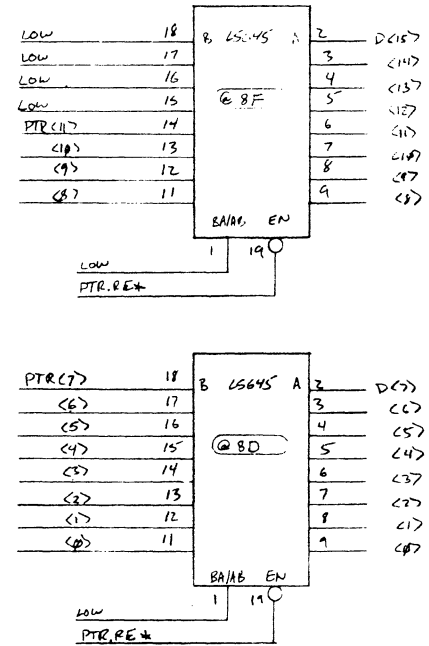 LOW 18 B LS645 A 2 D<15>
LOW 17 3 <14>
LOW 16 4 <13>
LOW 15 @ 8F 5 <12>
PTR<11> 14 6 <11>
<10> 13 7 <10>
<9> 12 8 <9>
<8> 11 9 <8>
BA/AB EN
1 19
LOW
PTR.RE*
PTR<7> 18 B LS645 A 2 D<7>
<6> 17 3 <6>
<5> 16 4 <5>
<4> 15 @ 8D 5 <4>
<3> 14 6 <3>
<2> 13 7 <2>
<1> 12 8 <1>
<0> 11 9 <0>
BA/AB EN
1 19
LOW
PTR.RE*